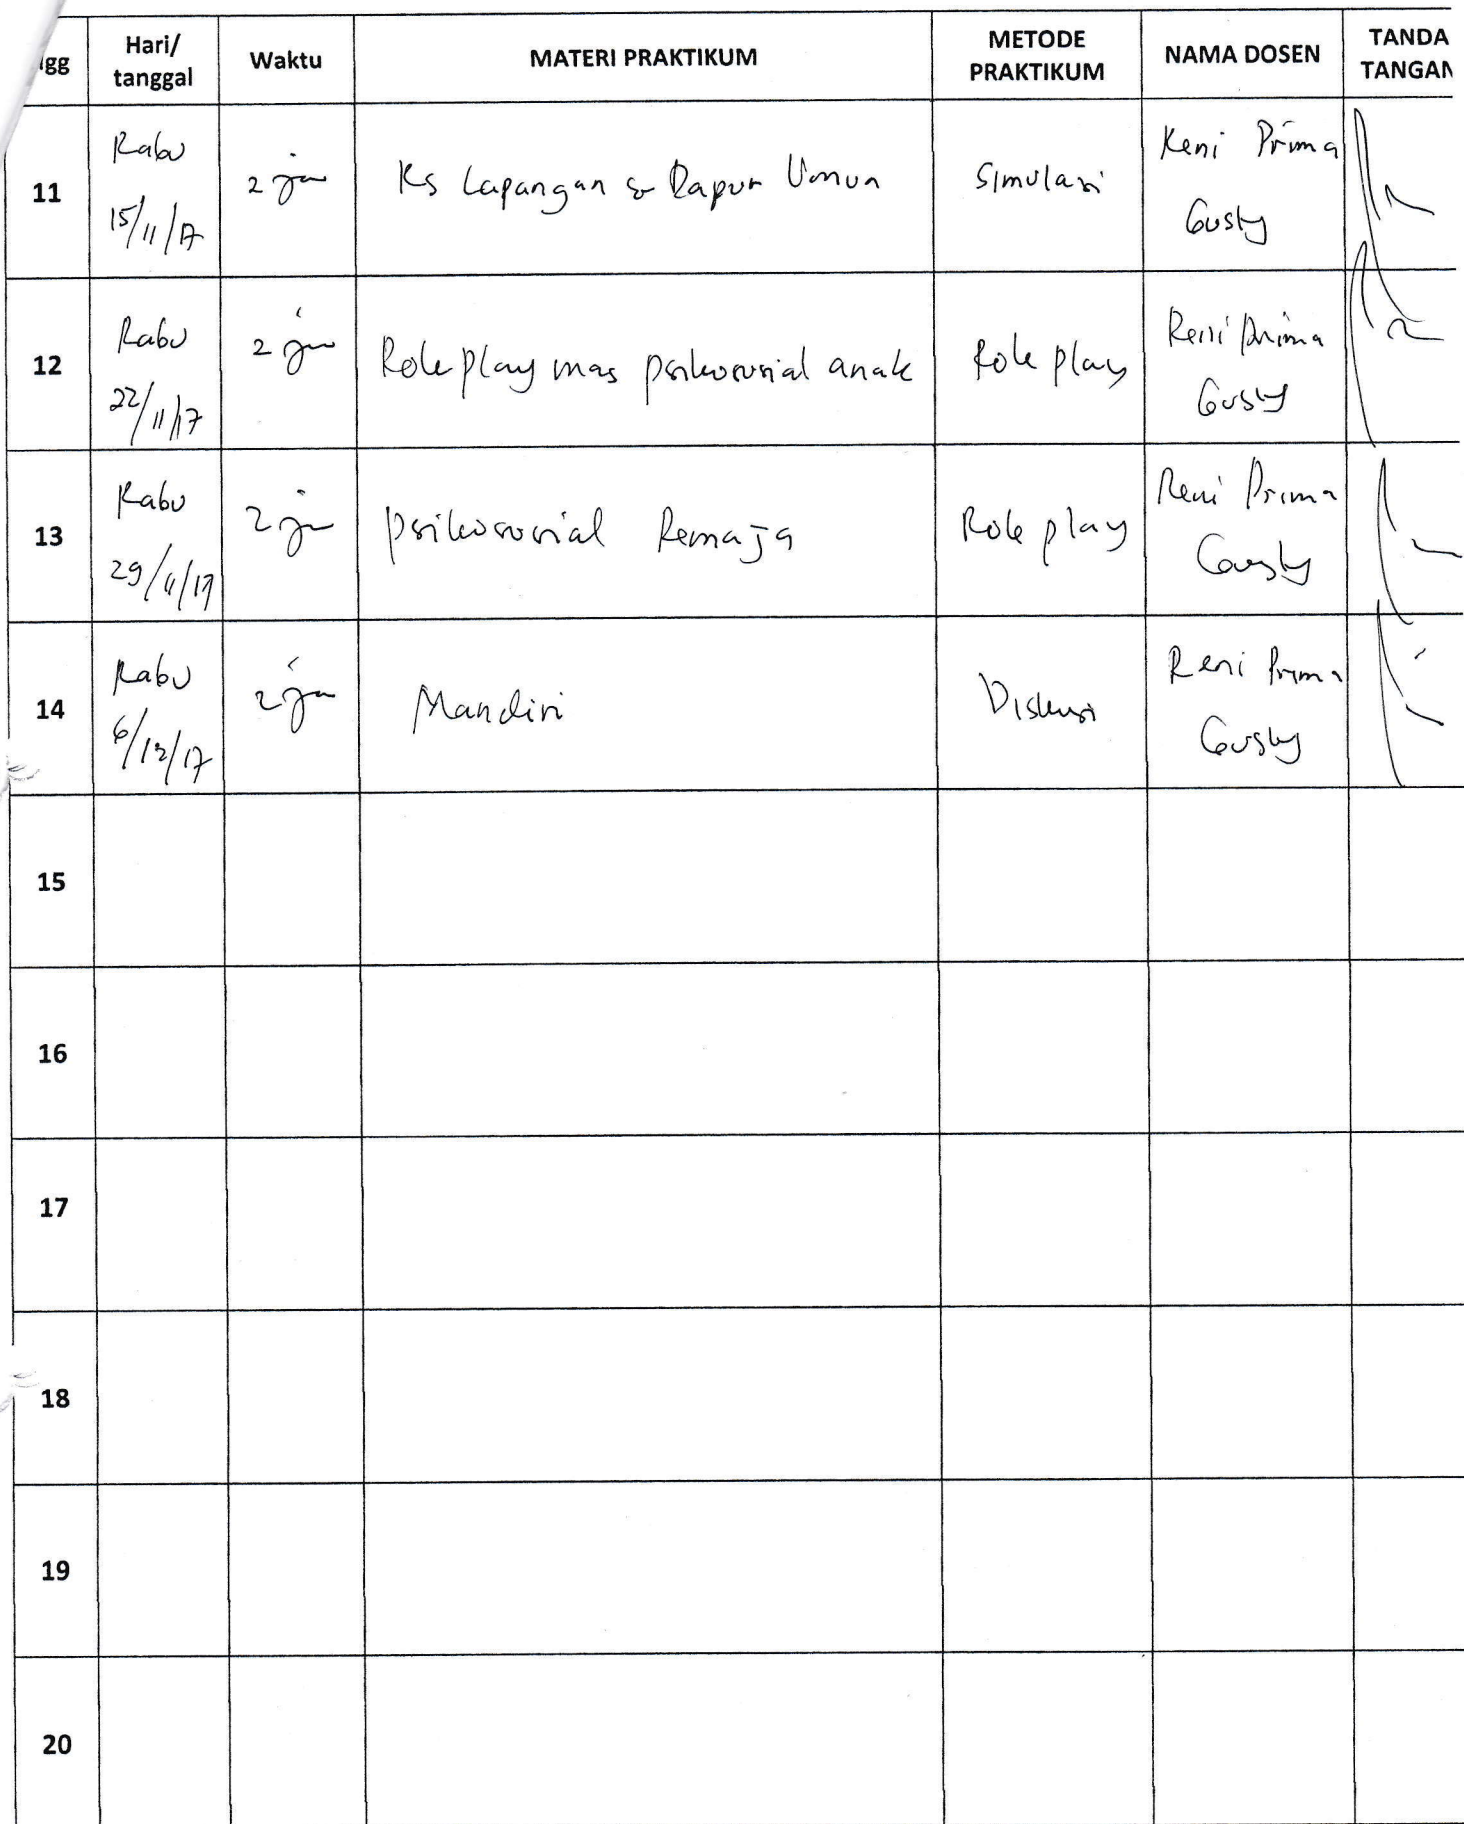 gg Hari/ tanggal Waktu MATERI PRAKTIKUM METODE PRAKTIKUM NAMA DOSEN TANDA TANGAN
11 Rabu 15/11/17 2 jam Ks Lapangan & Dapur Umum Simulasi Reni Prima Gusty
12 Rabu 22/11/17 2 jam Role play mas psikososial anak Role play Reni Prima Gusty
13 Rabu 29/11/17 2 jam psikososial Remaja Role play Reni Prima Gusty
14 Rabu 6/12/17 2 jam Mandiri Diskusi Reni Prima Gusty
15
16
17
18
19
20